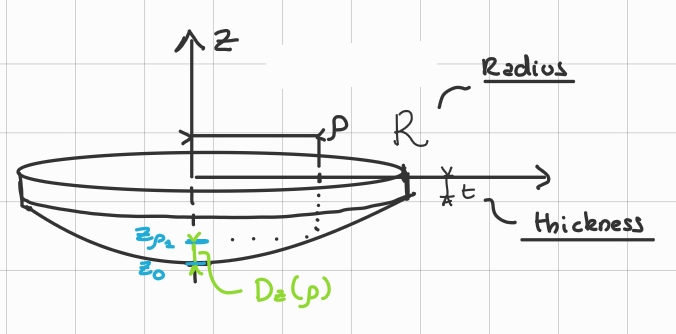 z
Radius
ρ
R
t
thickness
zρ₂
z₀
Dz(ρ)